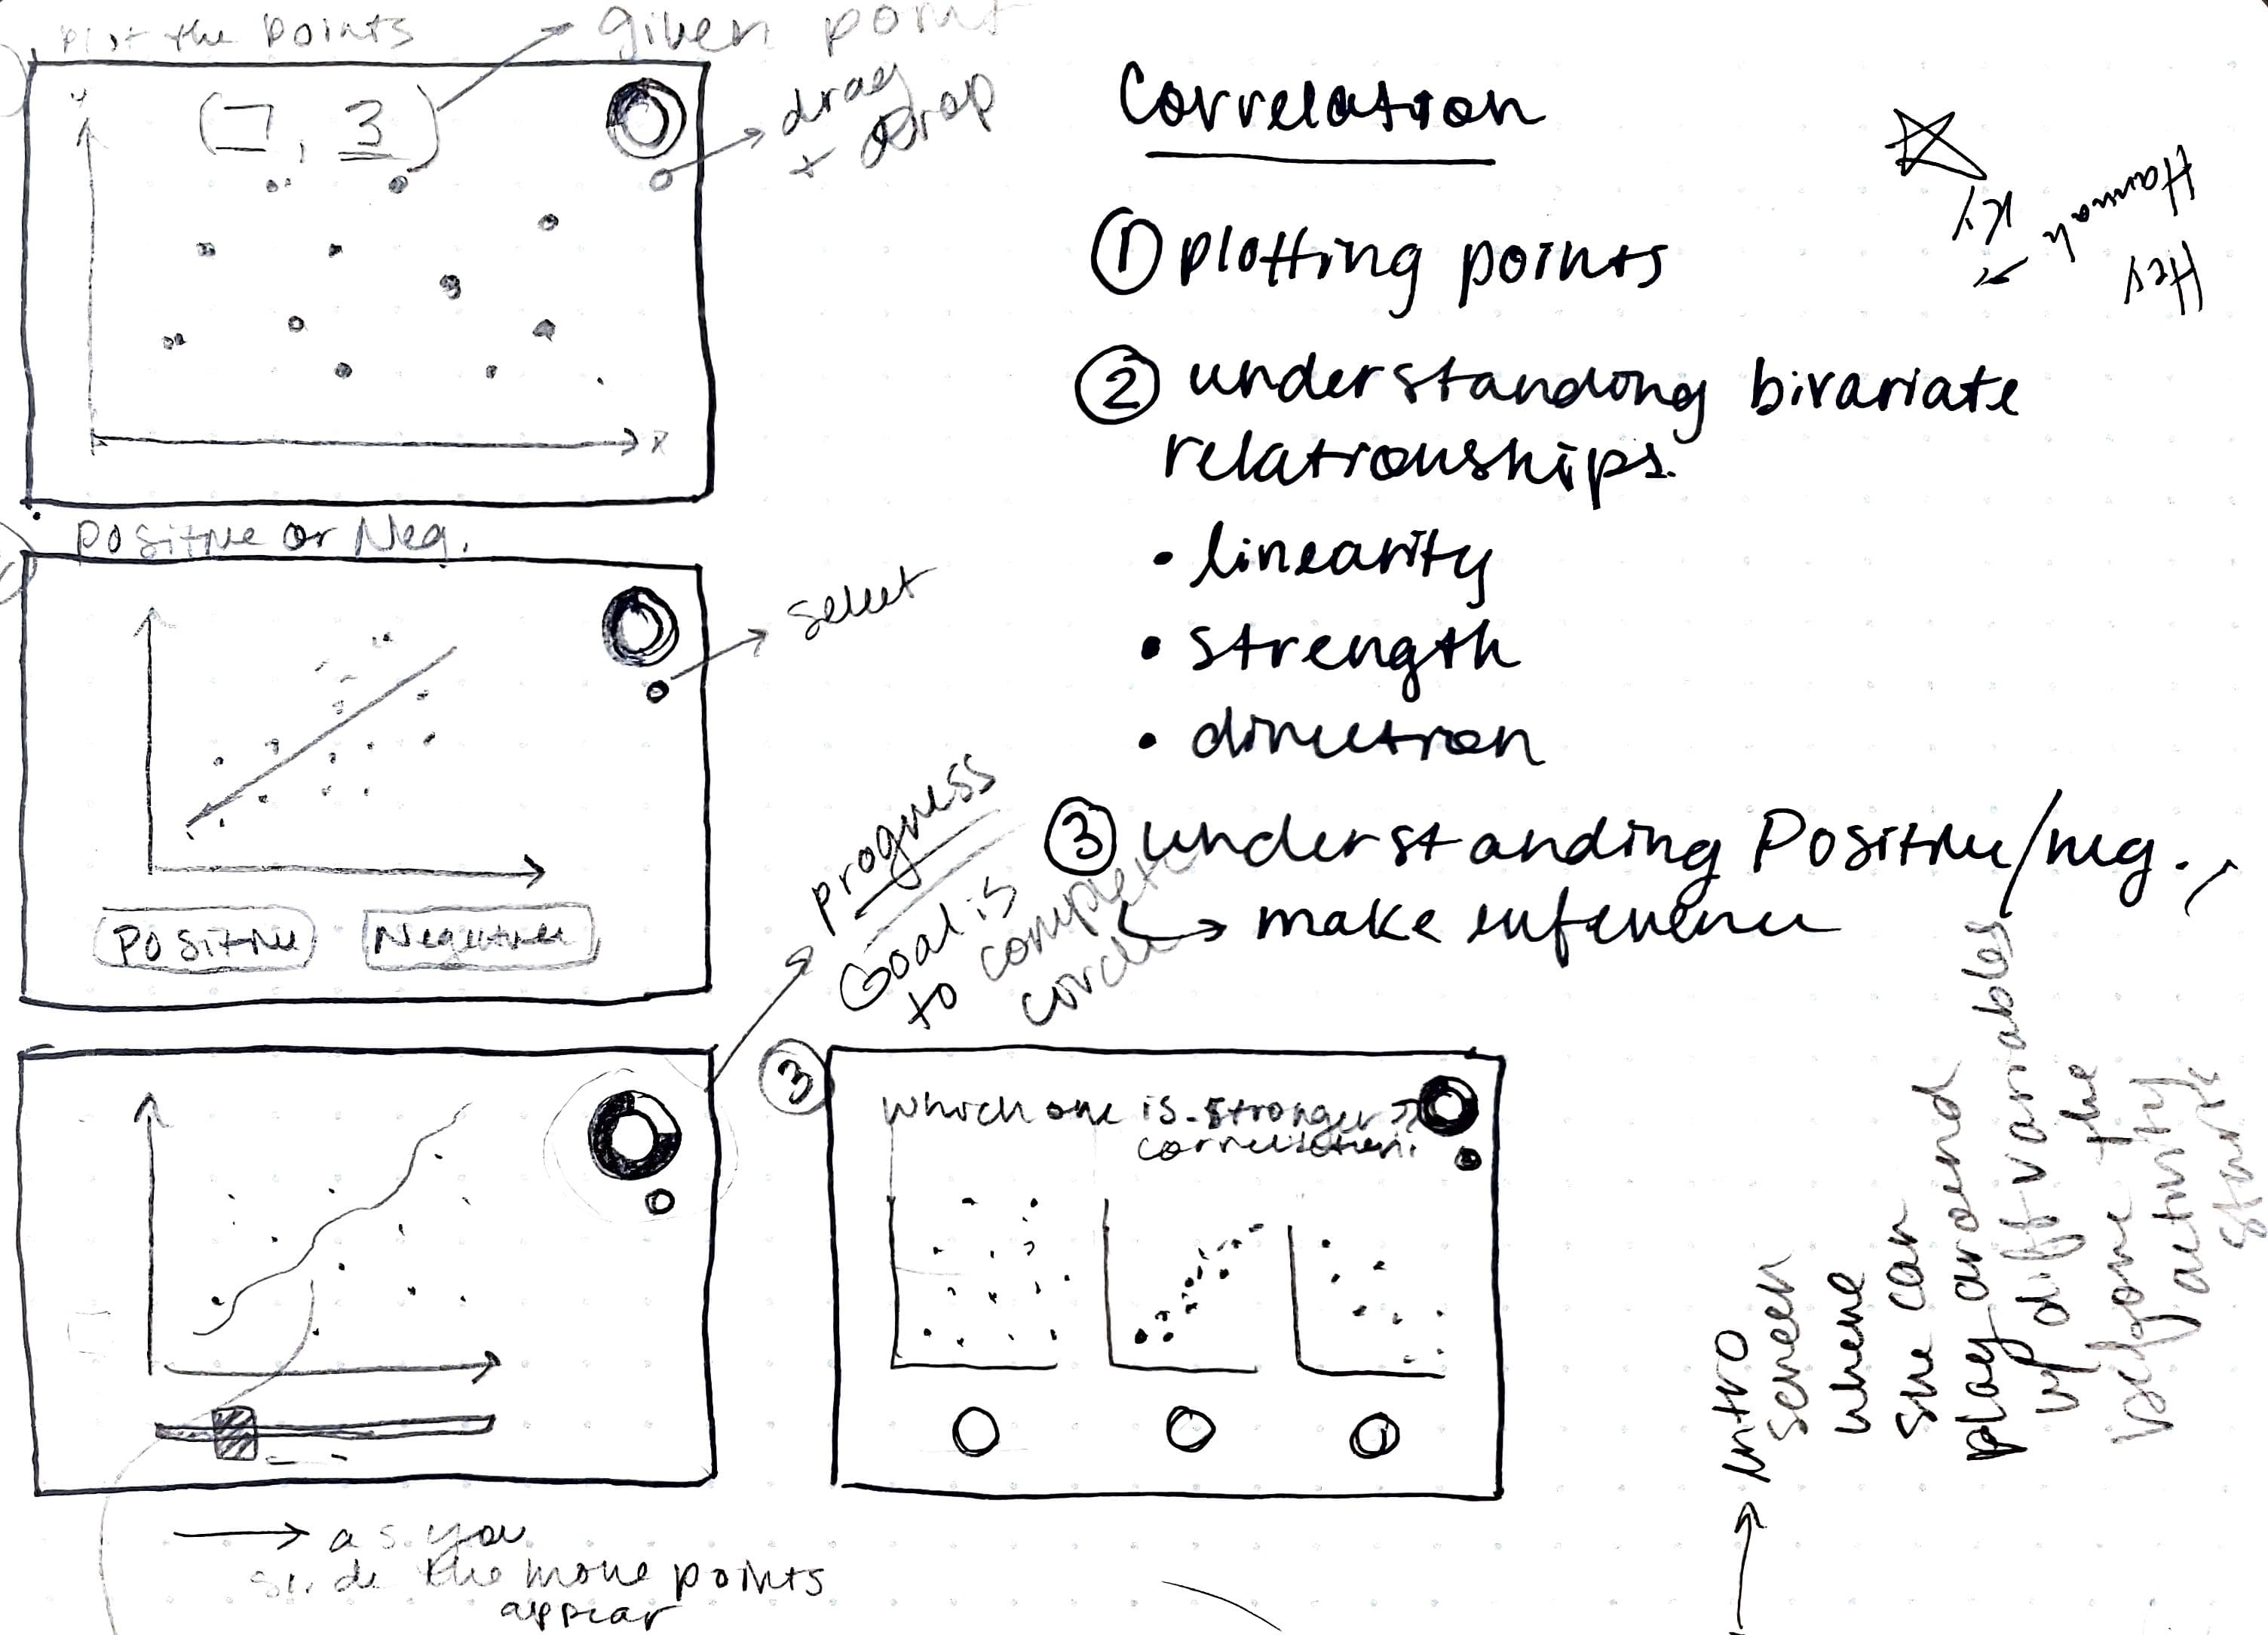 Plot the points
given point
(7, 3)
drag
+ drop
y
x
Correlation
① plotting points
② understanding bivariate
relationships.
• linearity
• strength
• direction
③ understanding Positive/neg.,
↳ make inference
Hey
Hannah
Key
Positive or Neg.
select
Positive
Negative
progress
Goal is
to complete
circle
③
Which one is stronger
correlation?
→ as you
slide the more points
appear
→ intro
screen
where
she can
play around
w/ diff variables
before the
activity
starts